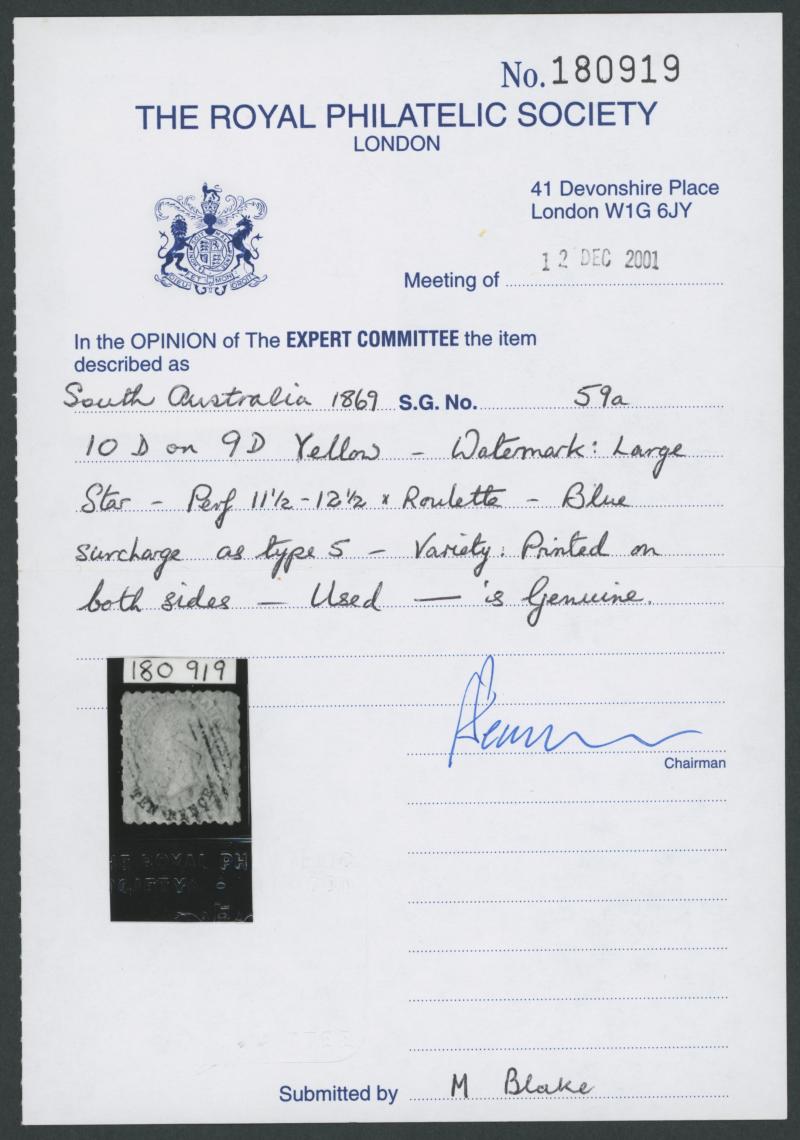 No. 180919
THE ROYAL PHILATELIC SOCIETY
LONDON
41 Devonshire Place
London W1G 6JY
Meeting of 12 DEC 2001
In the OPINION of The EXPERT COMMITTEE the item
described as
South Australia 1869 S.G. No. 59a
10 D on 9D Yellow - Watermark: Large
Star - Perf 11½-12½ x Roulette - Blue
surcharge as type 5 - Variety: Printed on
both sides — Used — is Genuine.
180 919
TEN PENCE
Chairman
Submitted by M Blake